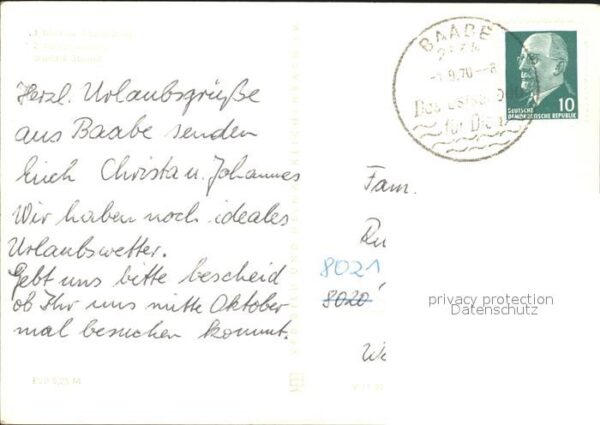 Herzl. Urlaubsgrüße
aus Baabe senden
Euch Christa u. Johannes
Wir haben noch ideales
Urlaubswetter.
Gebt uns bitte bescheid
ob Ihr uns mitte Oktober
mal besuchen kommt.
EVP 0,25 M
BAABE
-1.9.70--8
Das Ostseebad
für Dich
10
DEUTSCHE
DEMOKRATISCHE REPUBLIK
Fam.
8021
8020
privacy protection
Datenschutz